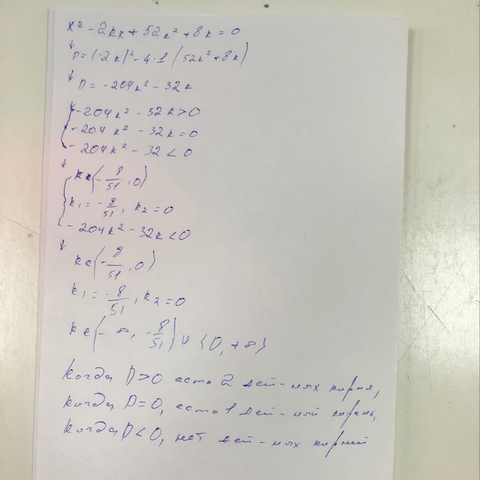 x² - 2kx + 52k² + 8k = 0
D = (-2k)² - 4·1 (52k² + 8k)
D = -204k² - 32k
-204k² - 32k > 0
-204k² - 32k = 0
-204k² - 32 < 0
k∈(-8/51, 0)
k₁ = -8/51, k₂ = 0
-204k² - 32k < 0
k∈(-8/51, 0)
k₁ = -8/51, k₂ = 0
k∈(-∞, -8/51) ∪ (0, +∞)
когда D>0 есть 2 дей-ных корня,
когда D=0, есть 1 дей-ный корень,
когда D<0, нет дей-ных корней